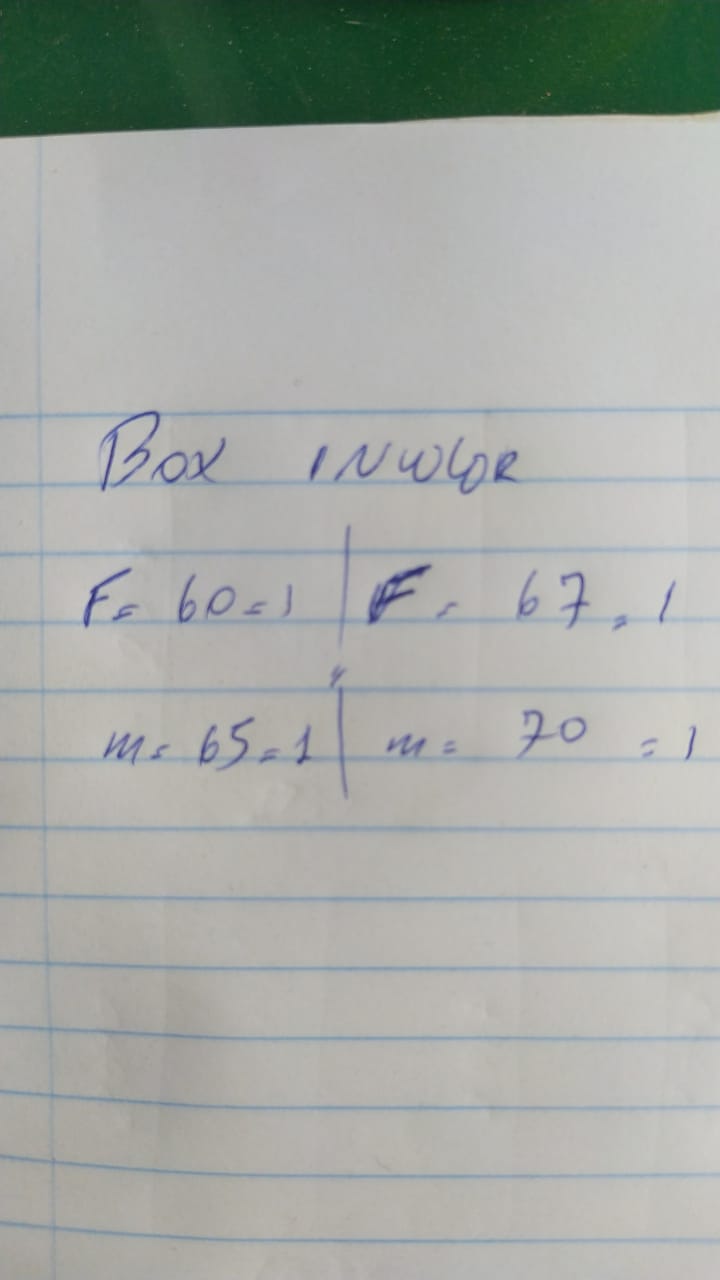 Box INCOLOR
F= 60=1 | F= 67=1
m= 65=1 | m= 70 =1